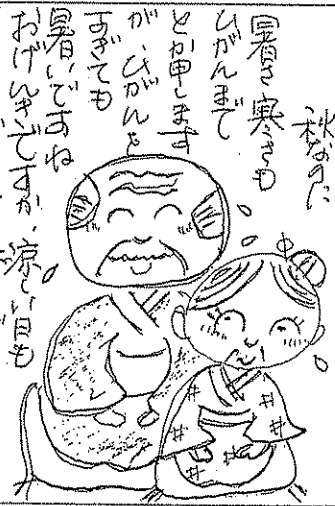 秋なのに
暑さ寒さも
ひがんまで
とか申します
が、ひがんを
すぎても
暑いですね
おげんきですか、涼しい日も